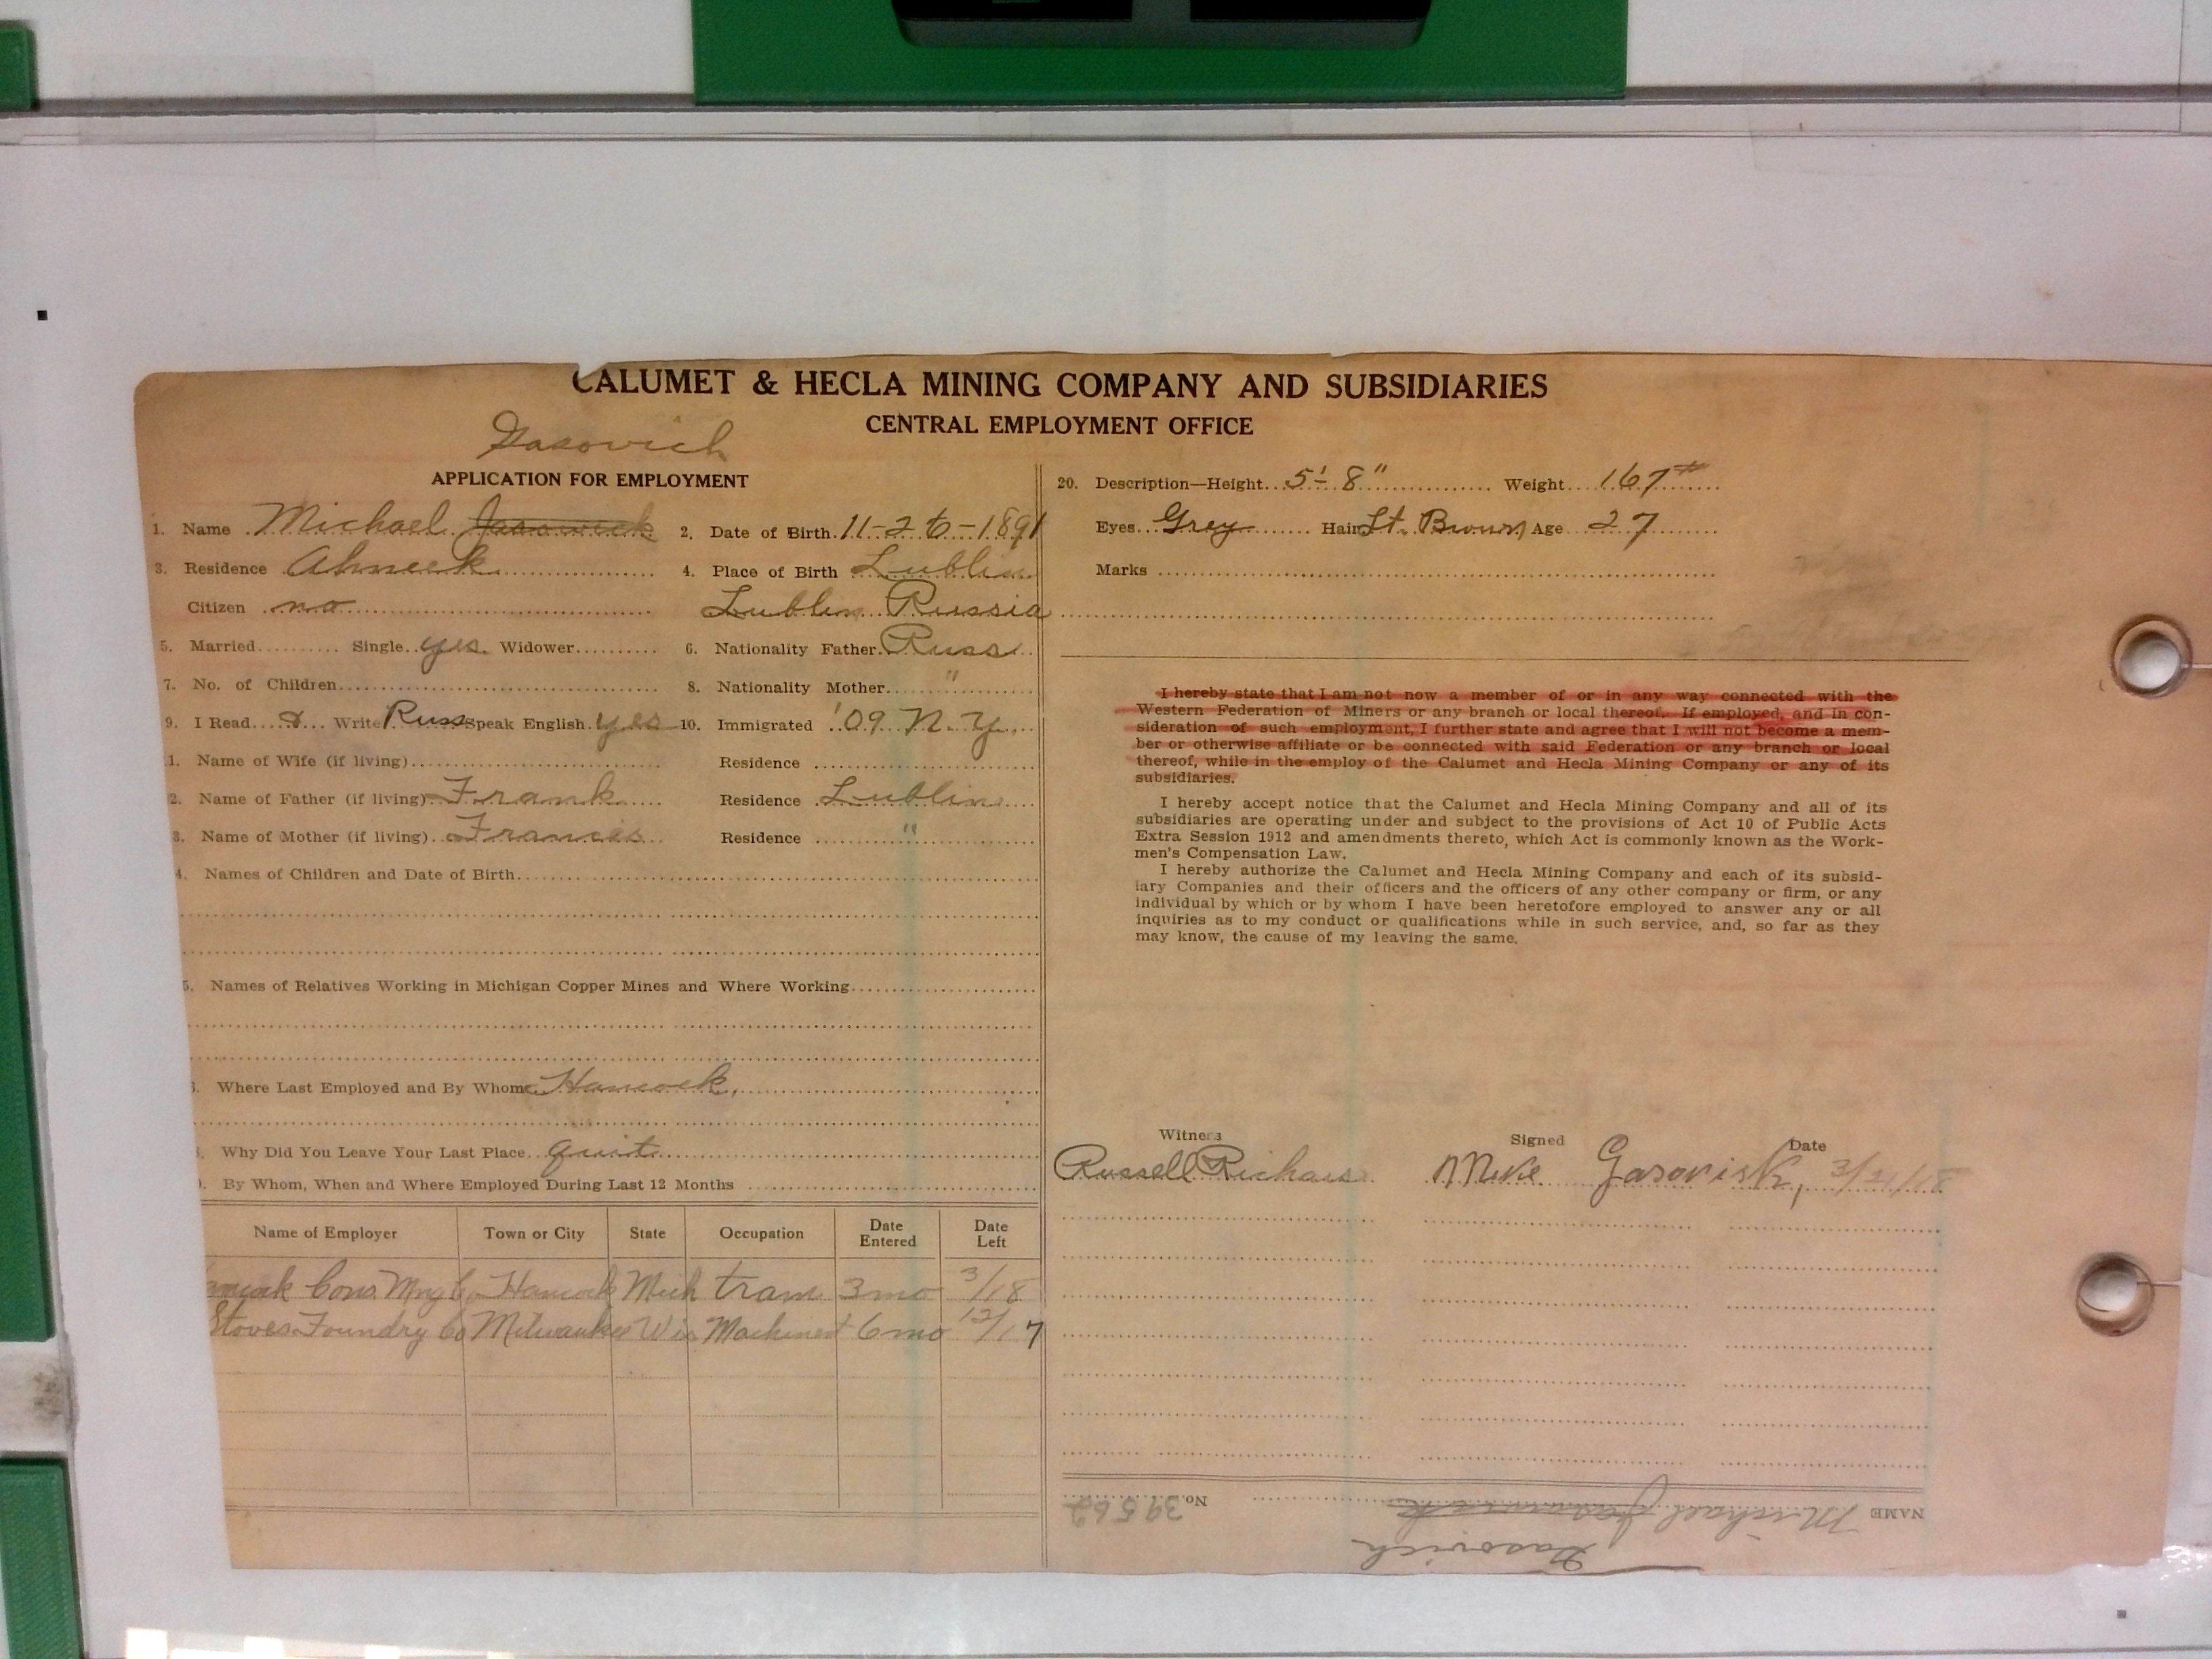 CALUMET & HECLA MINING COMPANY AND SUBSIDIARIES
CENTRAL EMPLOYMENT OFFICE
Gasovich
APPLICATION FOR EMPLOYMENT
1. Name Michael Jasowick 2. Date of Birth 11-26-1891
3. Residence Ahmeek 4. Place of Birth Lublin
Citizen no Lublin Russia
5. Married Single yes. Widower 6. Nationality Father Russ
7. No. of Children 8. Nationality Mother "
9. I Read & Write Russ Speak English yes 10. Immigrated '09 N.Y.
1. Name of Wife (if living) Residence
2. Name of Father (if living) Frank Residence Lublin
3. Name of Mother (if living) Frances Residence "
4. Names of Children and Date of Birth
5. Names of Relatives Working in Michigan Copper Mines and Where Working
Where Last Employed and By Whom Hancock.
Why Did You Leave Your Last Place quit
By Whom, When and Where Employed During Last 12 Months
Name of Employer Town or City State Occupation Date Entered Date Left
ancock Cons. Mng Co Hancock Mich tram 3mo 3/18
Stoves Foundry Co Milwaukee Wis Machinest 6mo 12/17
20. Description—Height 5'-8" Weight 167#
Eyes Grey Hair Lt. Brown Age 27
Marks
I hereby state that I am not now a member of or in any way connected with the
Western Federation of Miners or any branch or local thereof. If employed, and in con-
sideration of such employment, I further state and agree that I will not become a mem-
ber or otherwise affiliate or be connected with said Federation or any branch or local
thereof, while in the employ of the Calumet and Hecla Mining Company or any of its
subsidiaries.
I hereby accept notice that the Calumet and Hecla Mining Company and all of its
subsidiaries are operating under and subject to the provisions of Act 10 of Public Acts
Extra Session 1912 and amendments thereto, which Act is commonly known as the Work-
men's Compensation Law.
I hereby authorize the Calumet and Hecla Mining Company and each of its subsid-
iary Companies and their officers and the officers of any other company or firm, or any
individual by which or by whom I have been heretofore employed to answer any or all
inquiries as to my conduct or qualifications while in such service, and, so far as they
may know, the cause of my leaving the same.
Witness Signed Date
Russell Richars Mike Gasovisk, 3/21/18
Gasovich
NAME Michael Jasowick No. 39562